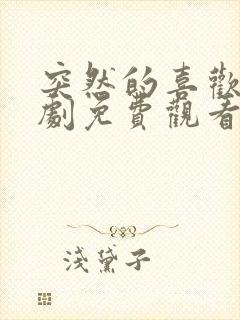 突然的喜歡
劇免費觀看
淺黛子